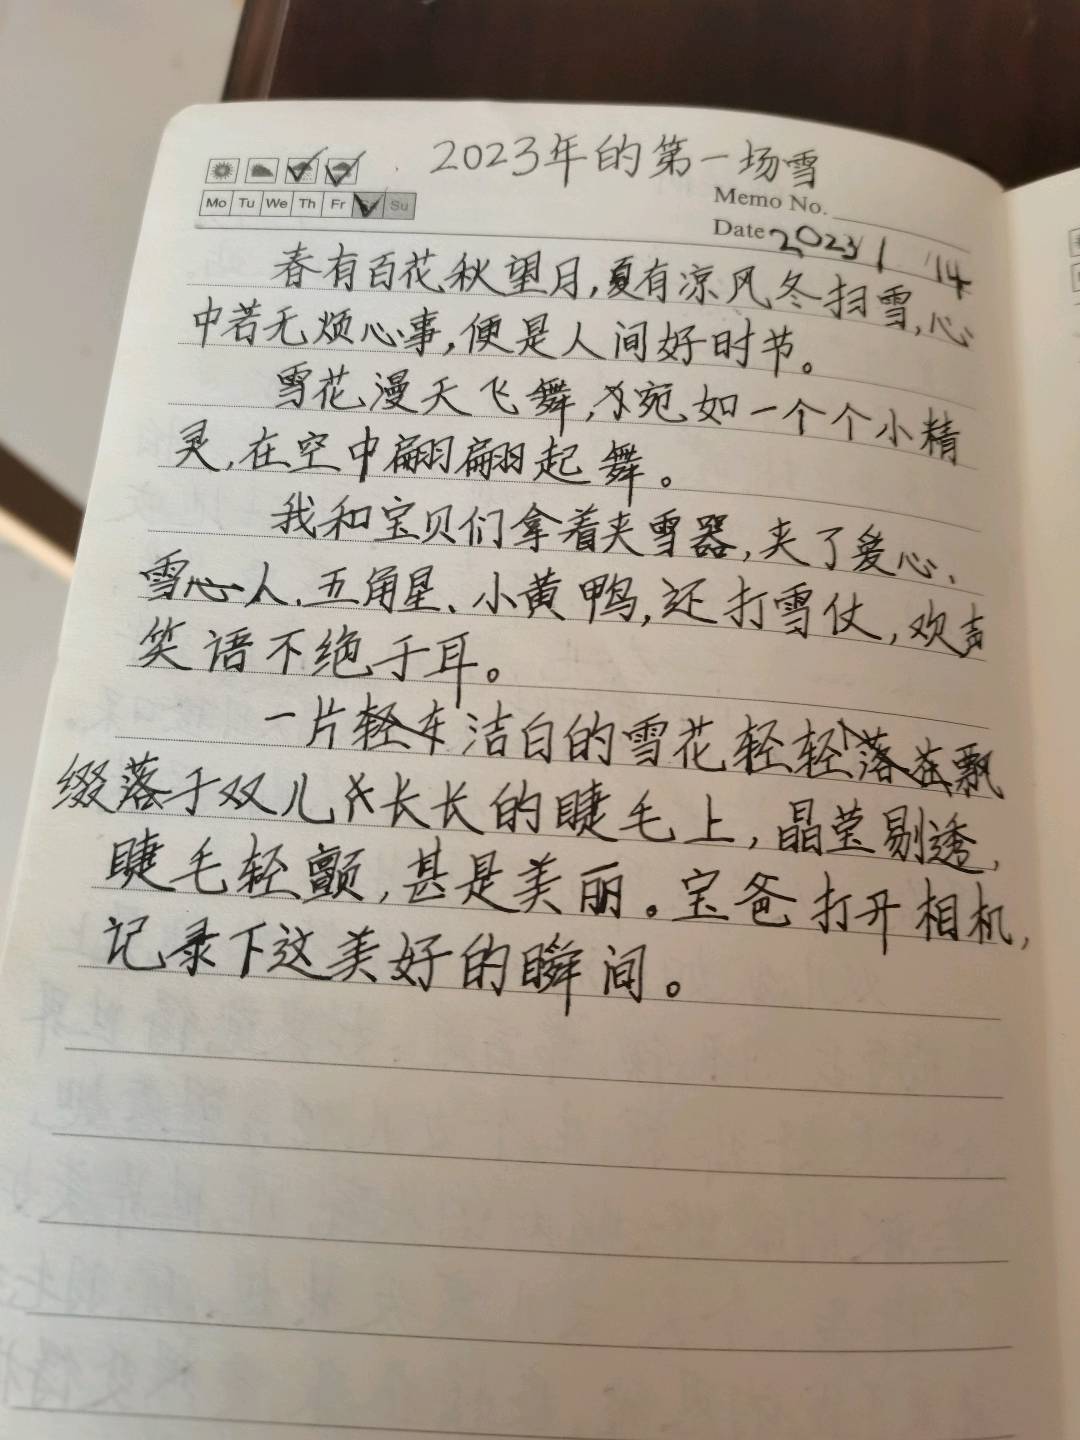 2023年的第一场雪
Mo Tu We Th Fr Sa Su
Memo No.
Date 2023/1/14
春有百花秋望月,夏有凉风冬扫雪,心
中若无烦心事,便是人间好时节。
雪花漫天飞舞,宛如一个个小精
灵,在空中翩翩起舞。
我和宝贝们拿着夹雪器,夹了爱心、
雪人、五角星、小黄鸭,还打雪仗,欢声
笑语不绝于耳。
一片洁白的雪花轻轻飘
落于双儿长长的睫毛上,晶莹剔透,
睫毛轻颤,甚是美丽。宝爸打开相机,
记录下这美好的瞬间。